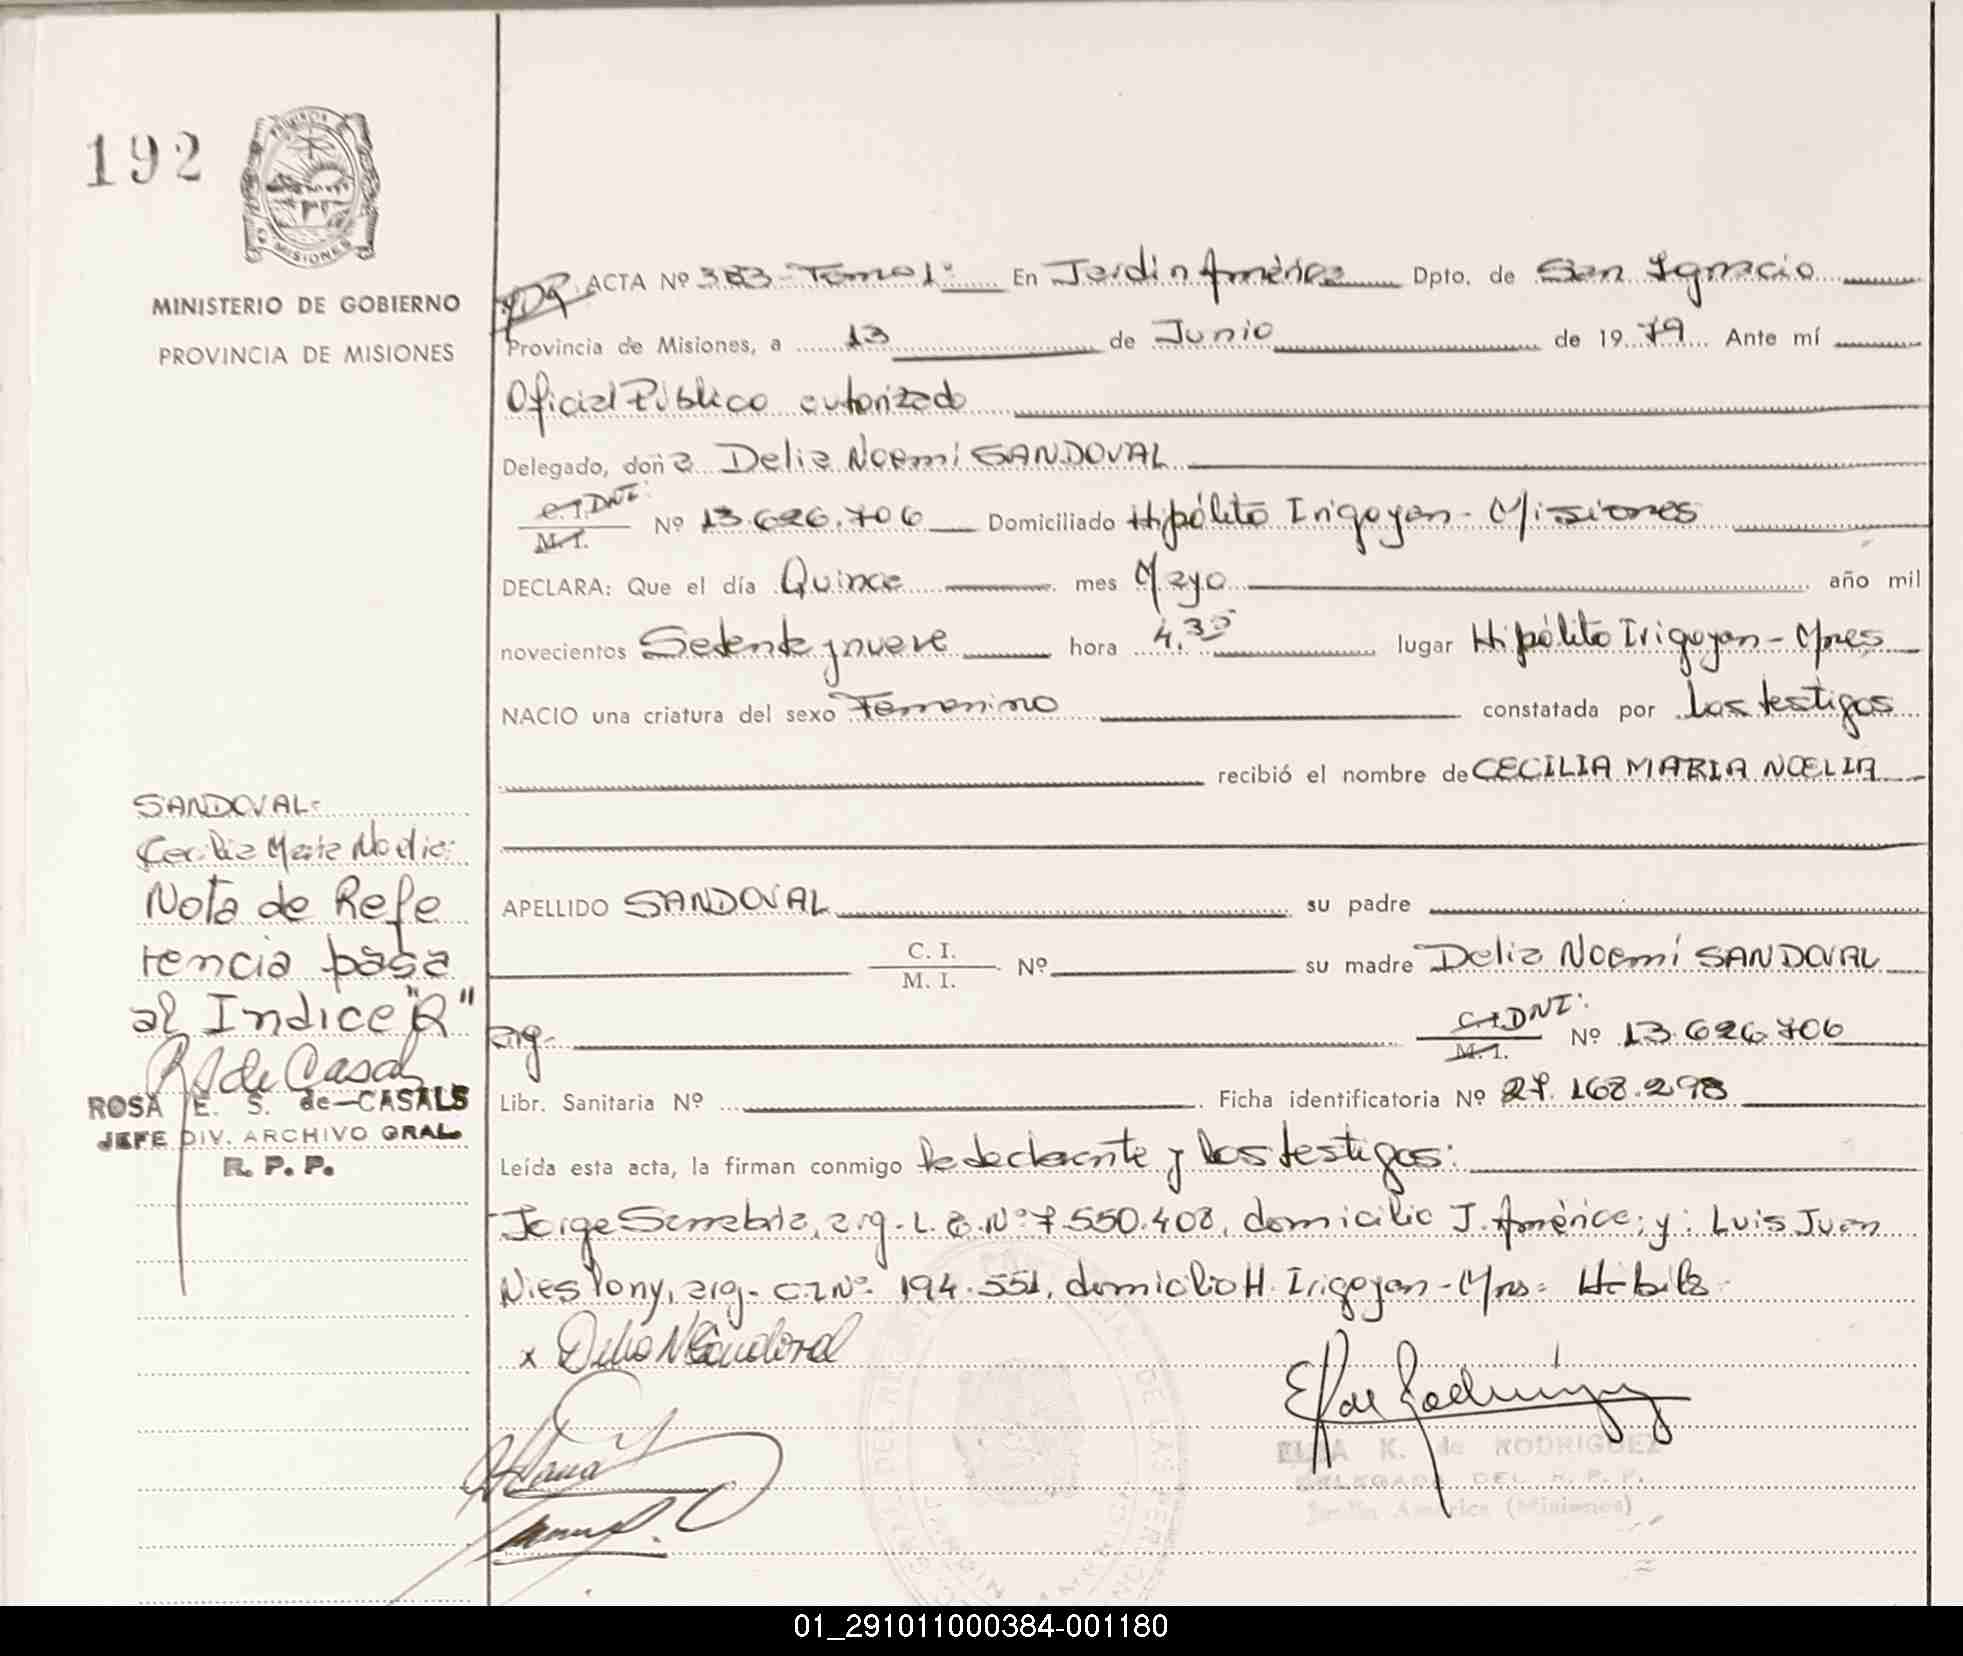 192
PROVINCIA
MISIONES
MINISTERIO DE GOBIERNO
PROVINCIA DE MISIONES
ACTA Nº 383 - Tomo 1º En Jardin América Dpto. de San Ignacio
Provincia de Misiones, a 13 de Junio de 1979 Ante mí
Oficial Público autorizado
Delegado, doña Delia Noemí SANDOVAL
C.I. DNI: M.I. Nº 13.626.706 Domiciliado Hipólito Irigoyen - Misiones
DECLARA: Que el día Quince mes Mayo año mil
novecientos Setenta y nueve hora 4.30 lugar Hipólito Irigoyen - Mnes
NACIO una criatura del sexo Femenino constatada por los testigos
recibió el nombre de CECILIA MARIA NOELIA
APELLIDO SANDOVAL su padre
C. I. M. I. Nº su madre Delia Noemí SANDOVAL
arg. C.I. DNI: M.I. Nº 13.626.706
Libr. Sanitaria Nº Ficha identificatoria Nº 27.168.298
Leída esta acta, la firman conmigo la declarante y los testigos:
Jorge Sanabria, arg. L.E. Nº 7.550.408, domicilio J. América; y: Luis Juan
Nieslony, arg. C.I Nº 194.551, domicilio H. Irigoyen - Mns=
x Delia N Sandoval
E K de Rodriguez
ELSA K. de RODRIGUEZ
DELEGADA DEL R. P. P.
Jardín América (Misiones)
SANDOVAL:
Cecilia Maria Noelia:
Nota de Refe
rencia pasa
al Indice "R"
R S de Casals
ROSA E. S. de CASALS
JEFE DIV. ARCHIVO GRAL.
R. P. P.
01_291011000384-001180